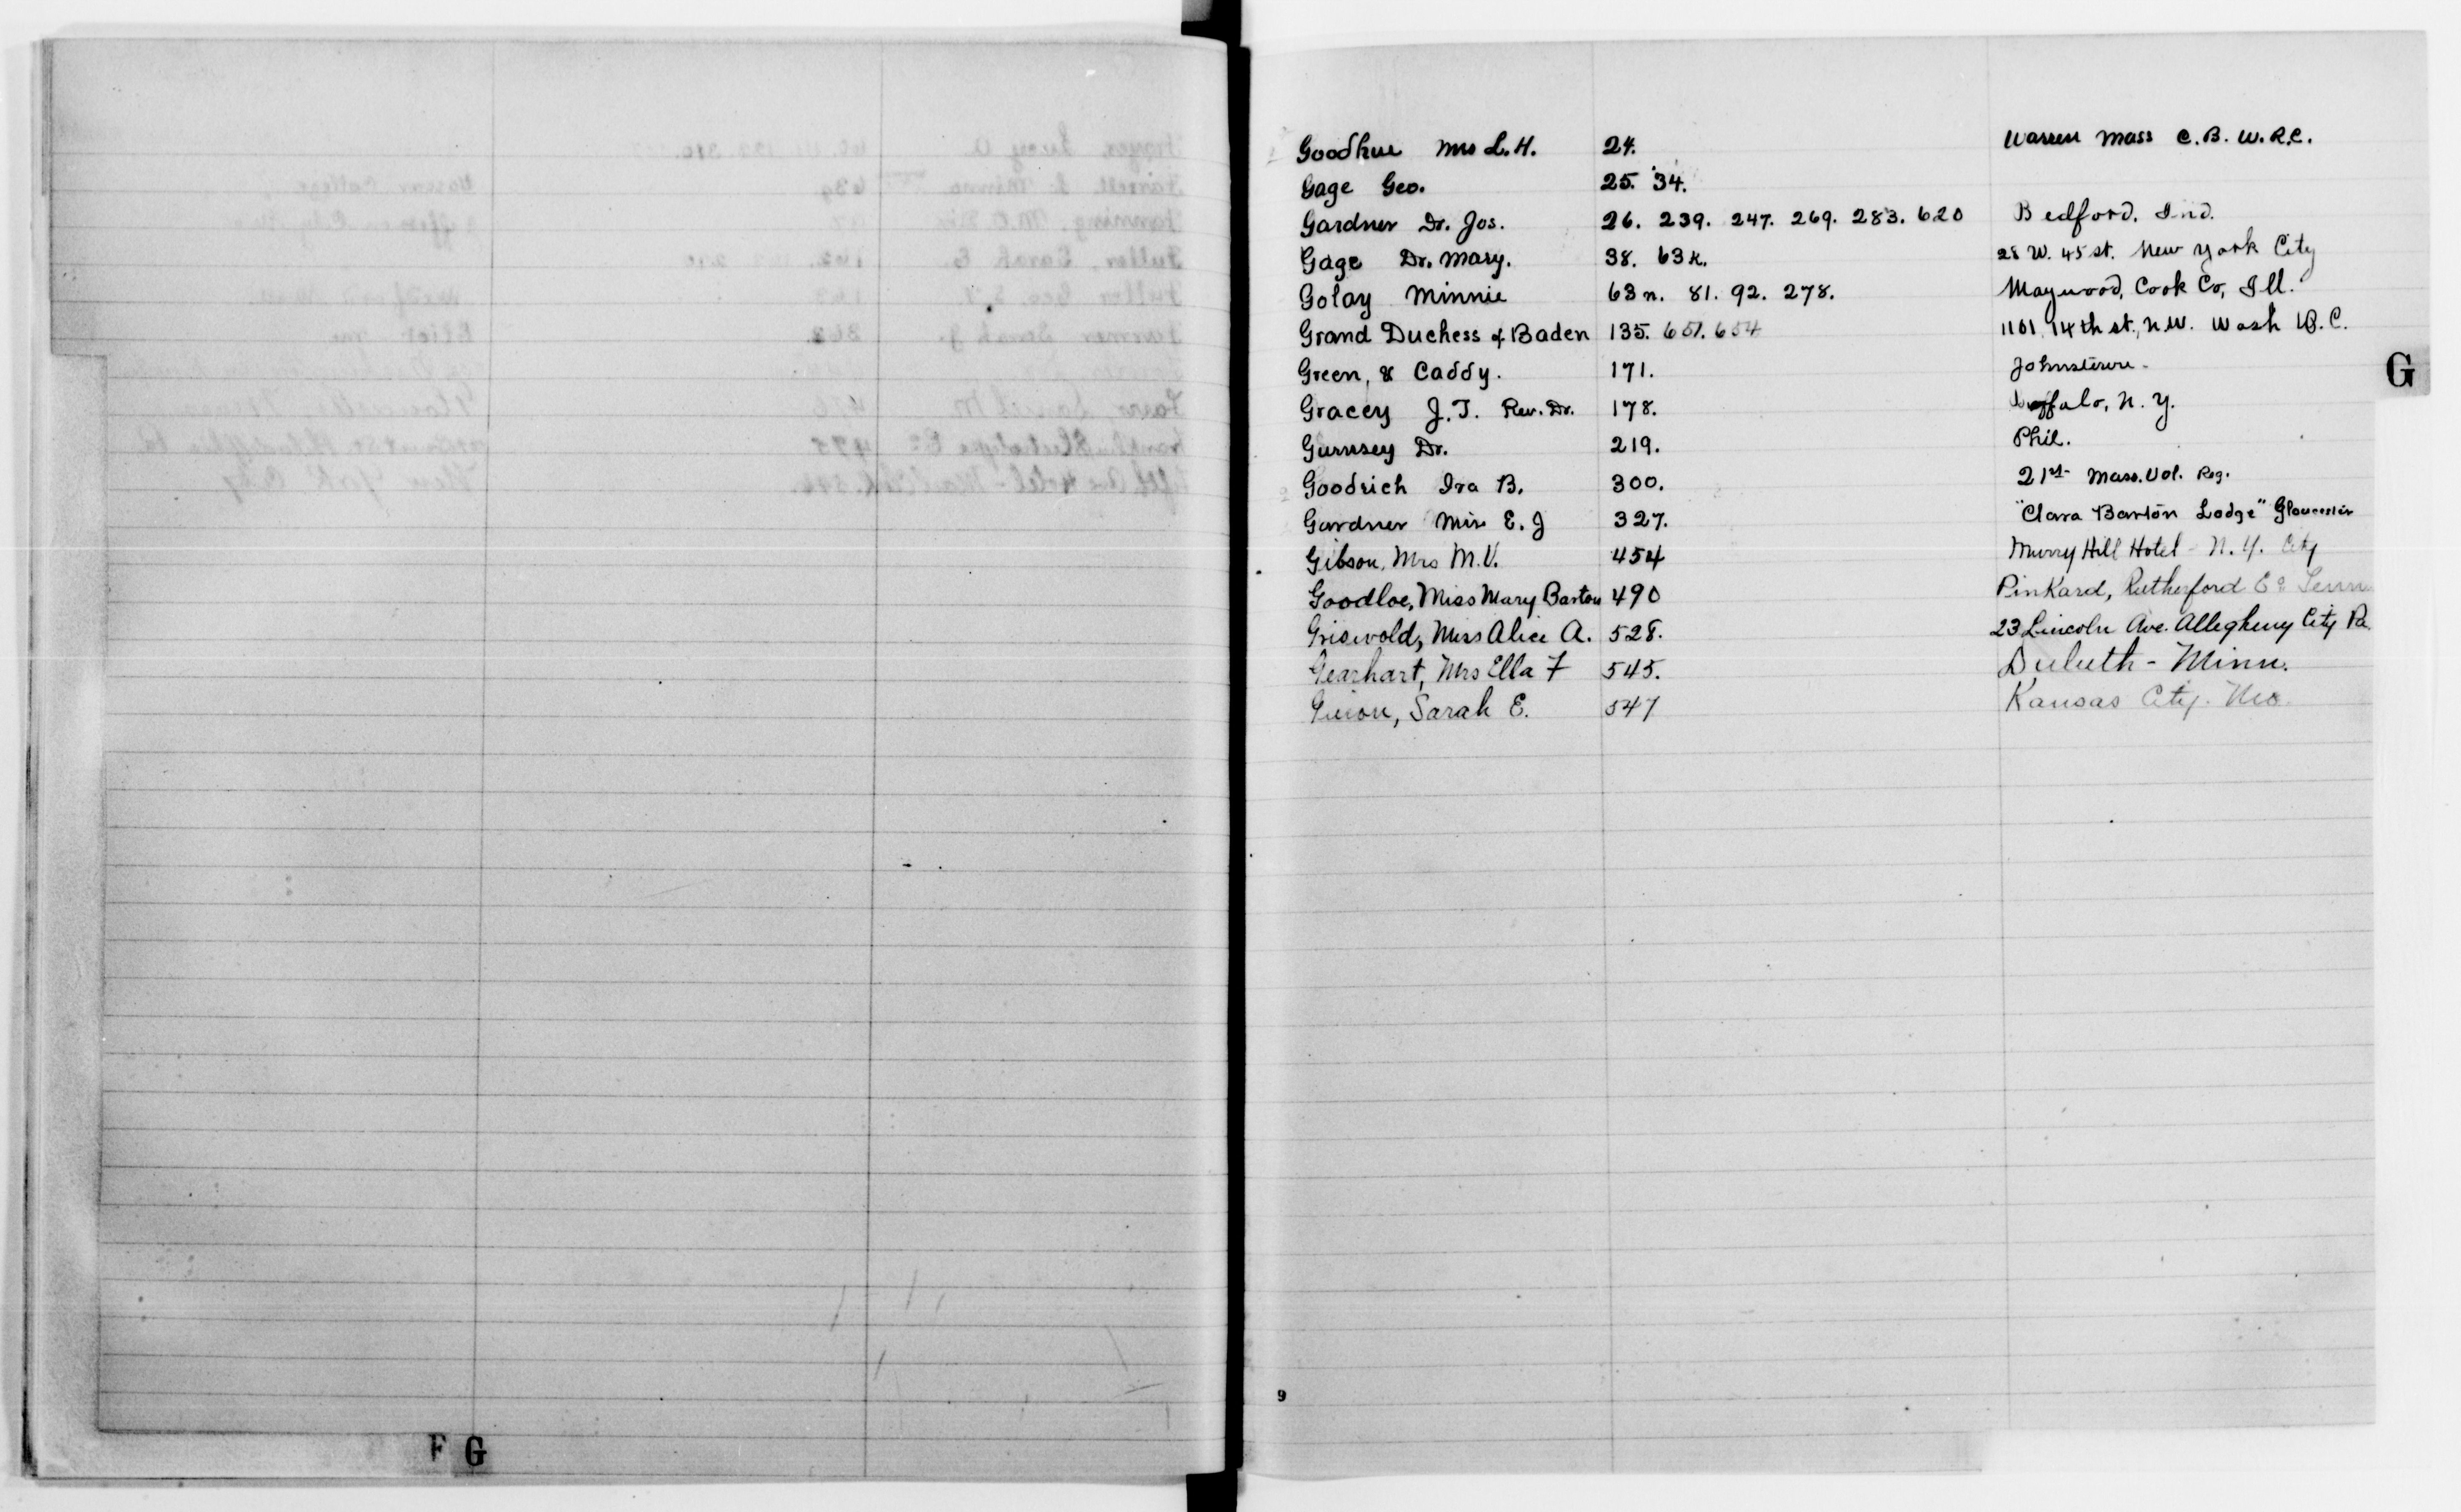 Goodhue Mrs L. H. 24. Warren Mass C. B. W. R. C.
Gage Geo. 25. 34.
Gardner Dr. Jos. 26. 239. 247. 269. 283. 620 Bedford, Ind.
Gage Dr. Mary. 38. 63 k. 28 W. 45 st. New York City
Golay Minnie 63 n. 81. 92. 278. Maywood, Cook Co, Ill.
Grand Duchess of Baden 135. 651. 654 1101 14th st., N.W. Wash D. C.
G
Green, & Caddy. 171. Johnstown.
Gracey J. T. Rev. Dr. 178. Buffalo, N. Y.
Gurnsey Dr. 219. Phil.
Goodrich Ira B. 300. 21st Mass. Vol. Reg.
Gardner Miss E. J 327. "Clara Barton Lodge" Gloucester
Gibson, Mrs M. V. 454 Murry Hill Hotel - N. Y. City
Goodloe, Miss Mary Barton 490 Pinkard, Rutherford Co Tenn
Griswold, Miss Alice A. 528. 23 Lincoln Ave. Allegheny City Pa.
Gearhart, Mrs Ella F 545. Duluth - Minn.
Sarah E. 547 Kansas City. Mo.
9
F G